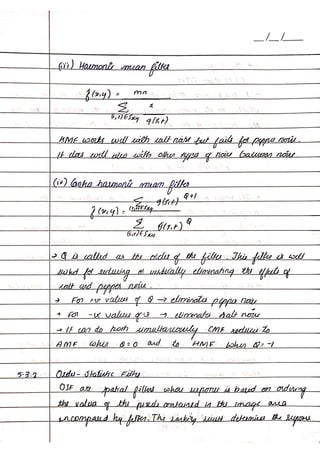 _/_/_
(iii) Harmonic mean filter
f(x,y) = mn
Σ 1
(s,t)∈Sxy g(s,t)
HMF works well with salt noise but fails for pepper noise.
It does well also with other types of noise Gaussian noise
(iv) Contra harmonic mean filter
f(x,y) = Σ(s,t)∈Sxy g(s,t) Q+1
Σ(s,t)∈Sxy g(s,t) Q
→ Q is called as the order of the filter. This filter is well
suited for reducing or virtually eliminating the effects of
salt and pepper noise.
→ For +ve values of Q → eliminates pepper noise
→ For -ve values of Q → eliminates salt noise
→ It can do both simultaneously CMF reduces to
AMF when Q=0 and to HMF when Q=-1
5.3.2 Order-Statistic Filter
OSF are spatial filters whose response is based on ordering
the values of the pixels contained in the image area
encompassed by filter. The ranking result determines the response